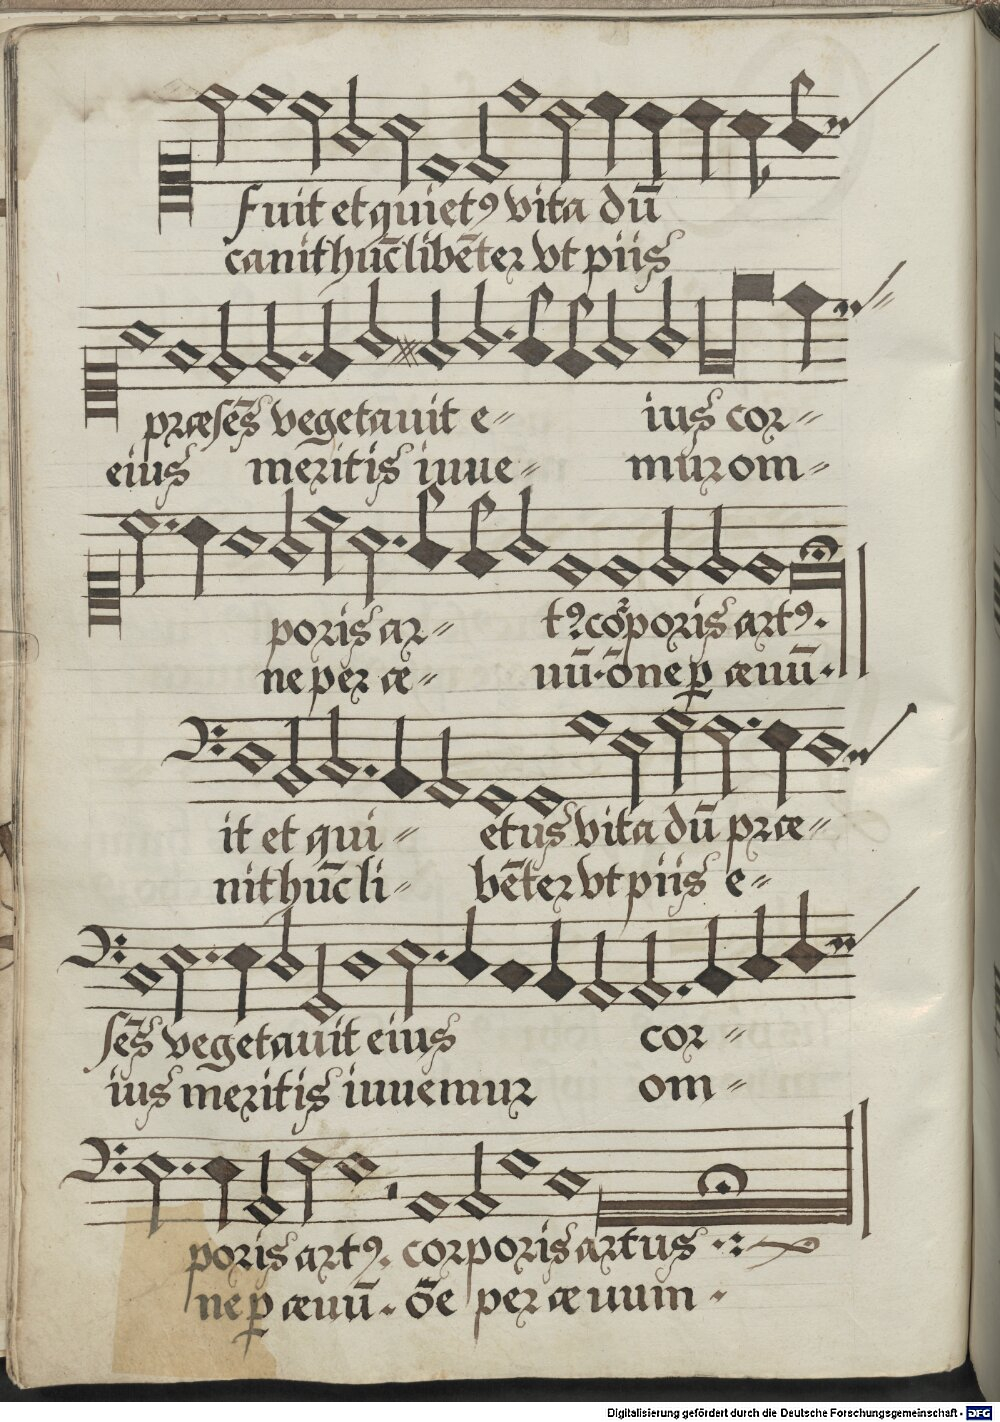 Fuit et quietꝯ vita dū
canit hūc libēter vt piis
præsēs vegetauit e〃 ius cor〃
eius meritis iuue〃 mur om〃
poris ar〃 tꝯ corporis artꝯ.
ne per æ〃 uū. ōne ꝑ æuū.
it et qui〃 etus vita dū præ〃
nit hūc li〃 bēter vt piis e〃
sēs vegetauit eius cor〃
ius meritis iuuemur om〃
poris artꝯ. corporis artus
ne ꝑ æuū. ōe per æuum.
Digitalisierung gefördert durch die Deutsche Forschungsgemeinschaft - DFG